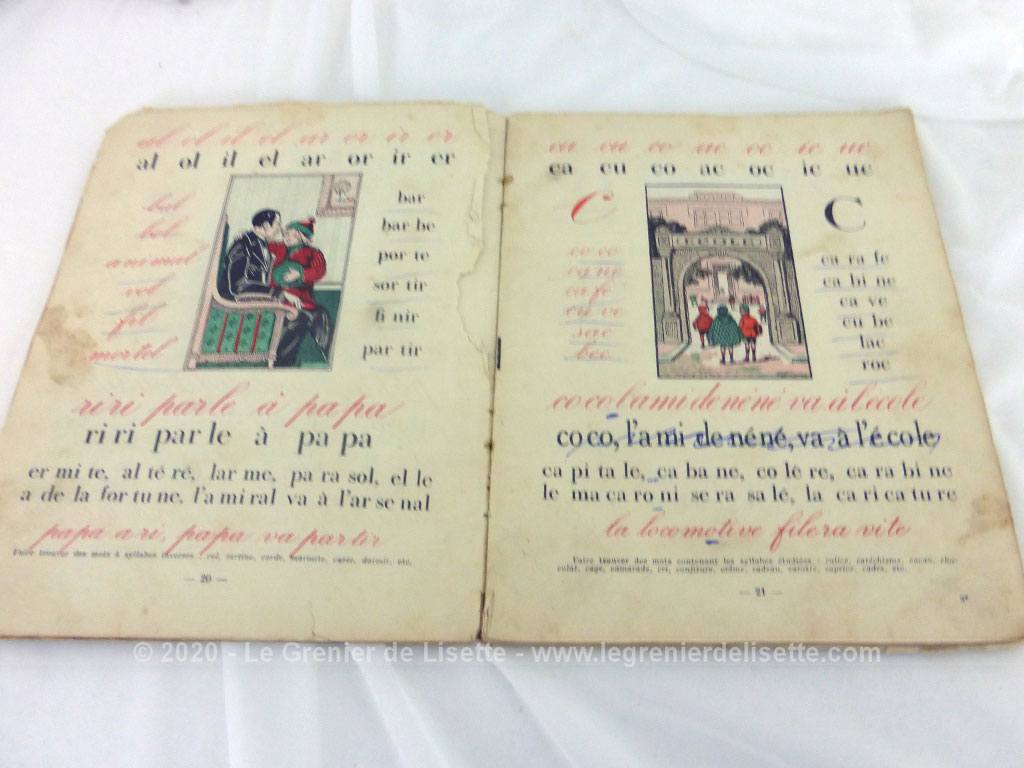 al ol il el ar or ir er
al ol il el ar or ir er
bal
bol
animal
vol
fil
mortel
bar
bar be
por te
sor tir
fi nir
par tir
riri parle à papa
ri ri par le à pa pa
er mi te, al té ré, lar me, pa ra sol, el le
a de la for tu ne, l'a mi ral va à l'ar se nal
papa a ri, papa va partir
Faire trouver des mots à syllabes inverses : col, tartine, corde, dormir, etc.
— 20 —
ca cu co ac oc ic uc
ca cu co ac oc ic uc
C
C
ÉCOLE
co co
ca fé
cu ve
sac
bec
ca ra fe
ca bi ne
ca ve
cu be
lac
roc
coco l'ami de néné va à l'école
co co, l'a mi de né né, va à l'é co le
ca pi ta le, ca ba ne, co lè re, ca ra bi ne
le ma ca ro ni se ra sa lé, la ca ri ca tu re
la locomotive filera vite
Faire trouver des mots contenant les syllabes étudiées : calice, catéchisme, cacao, cho-
colat, cage, camarade, cri, confiture, crème, cadeau, caprice, cadre, etc.
— 21 —
© 2020 - Le Grenier de Lisette - www.legrenierdelisette.com